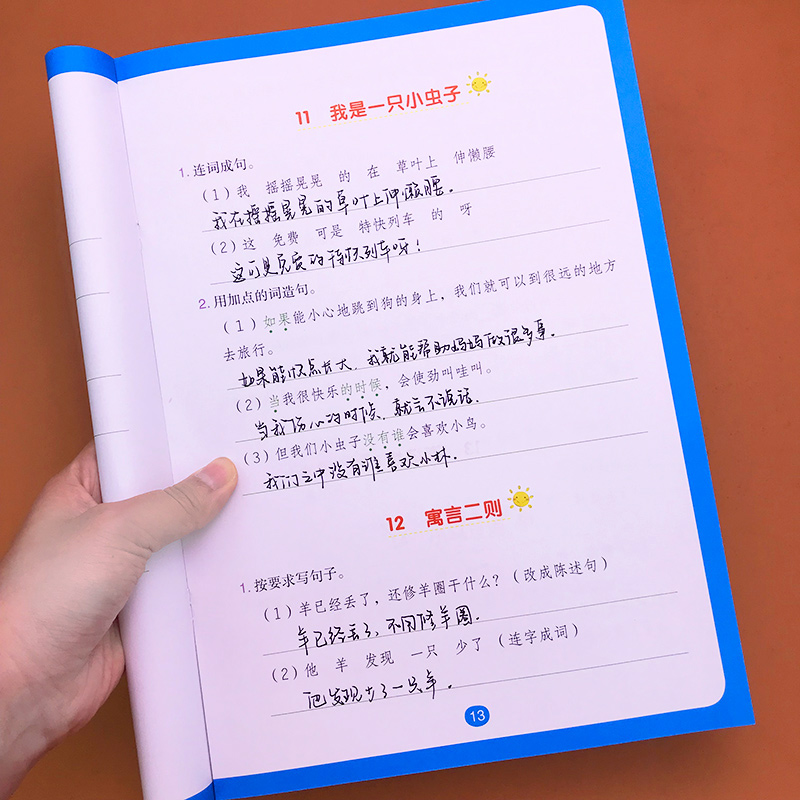 11 我是一只小虫子
1. 连词成句。
（1）我 摇摇晃晃 的 在 草叶上 伸懒腰
我在摇摇晃晃的草叶上伸懒腰。
（2）这 免费 可是 特快列车 的 呀
这可是免费的特快列车呀！
2. 用加点的词造句。
（1）如果能小心地跳到狗的身上，我们就可以到很远的地方
去旅行。
如果能快点长大，我就能帮助妈妈做很多事。
（2）当我很快乐的时候，会使劲叫哇叫。
当我伤心的时候，就会不说话。
（3）但我们小虫子没有谁会喜欢小鸟。
我们之中没有谁喜欢小林。
12 寓言二则
1. 按要求写句子。
（1）羊已经丢了，还修羊圈干什么？（改成陈述句）
羊已经丢了，不用修羊圈。
（2）他 羊 发现 一只 少了（连字成词）
他发现少了一只羊。
13